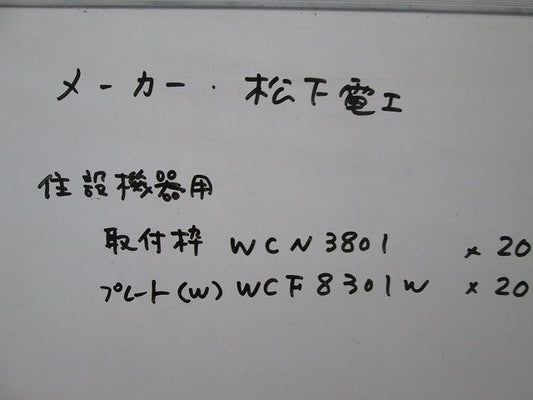 メーカー・松下電工
住設機器用
取付枠 WCN3801 × 20
プレート(W) WCF8301W × 20